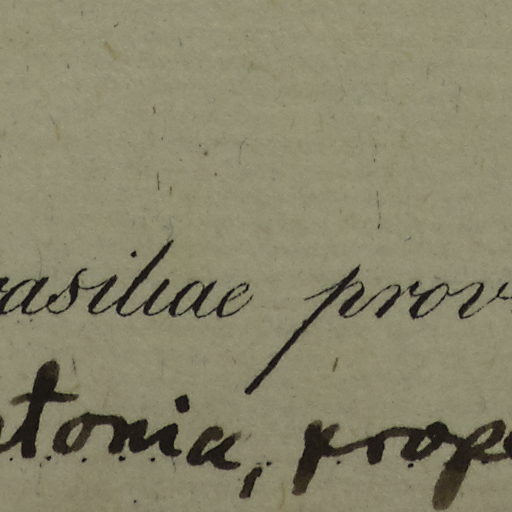 rasiliae prov
ntonia, prope